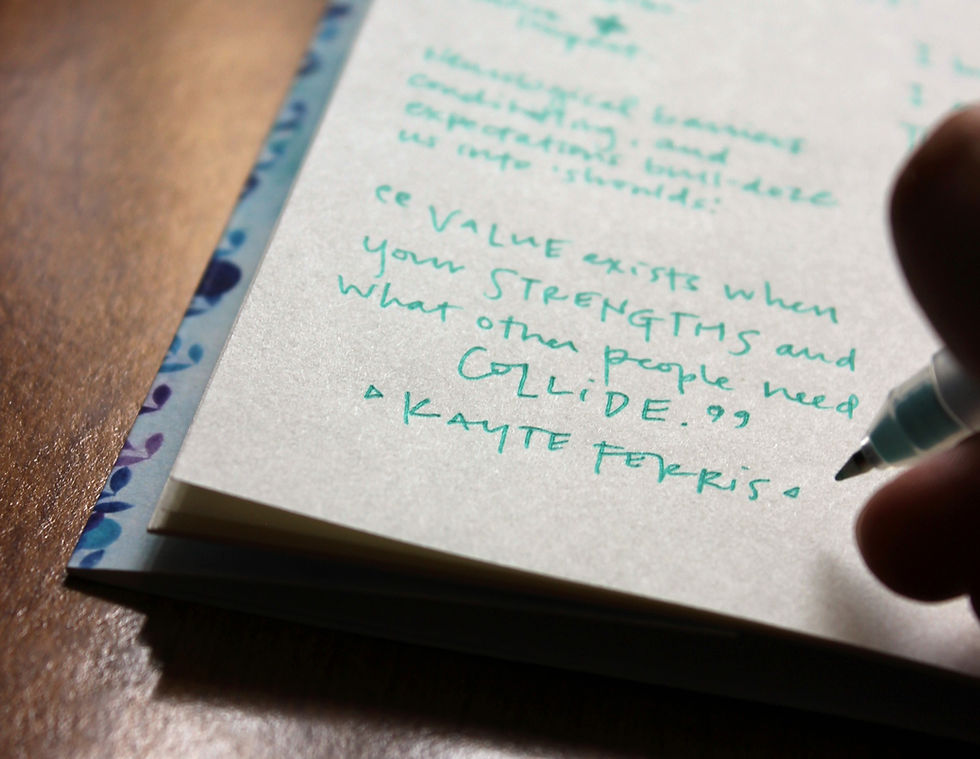 +
barriers
conditioning, and
expectations bull-doze
us into "shoulds:"
“VALUE exists when
your STRENGTHS and
what other people need
COLLiDE.”
KAYTE FERRiS